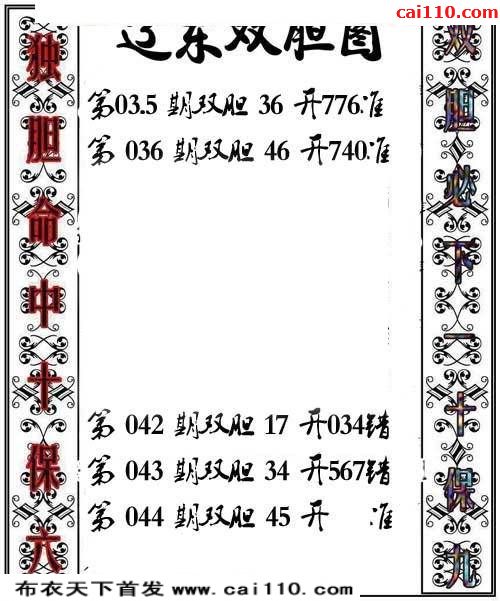 cai110.com
辽东双胆图
独胆命中十保六
双胆必下一十保九
第03.5 期双胆 36 开776准
第 036 期双胆 46 开740准
第 042 期双胆 17 开034错
第 043 期双胆 34 开567错
第 044 期双胆 45 开 准
布衣天下首发 www.cai110.com